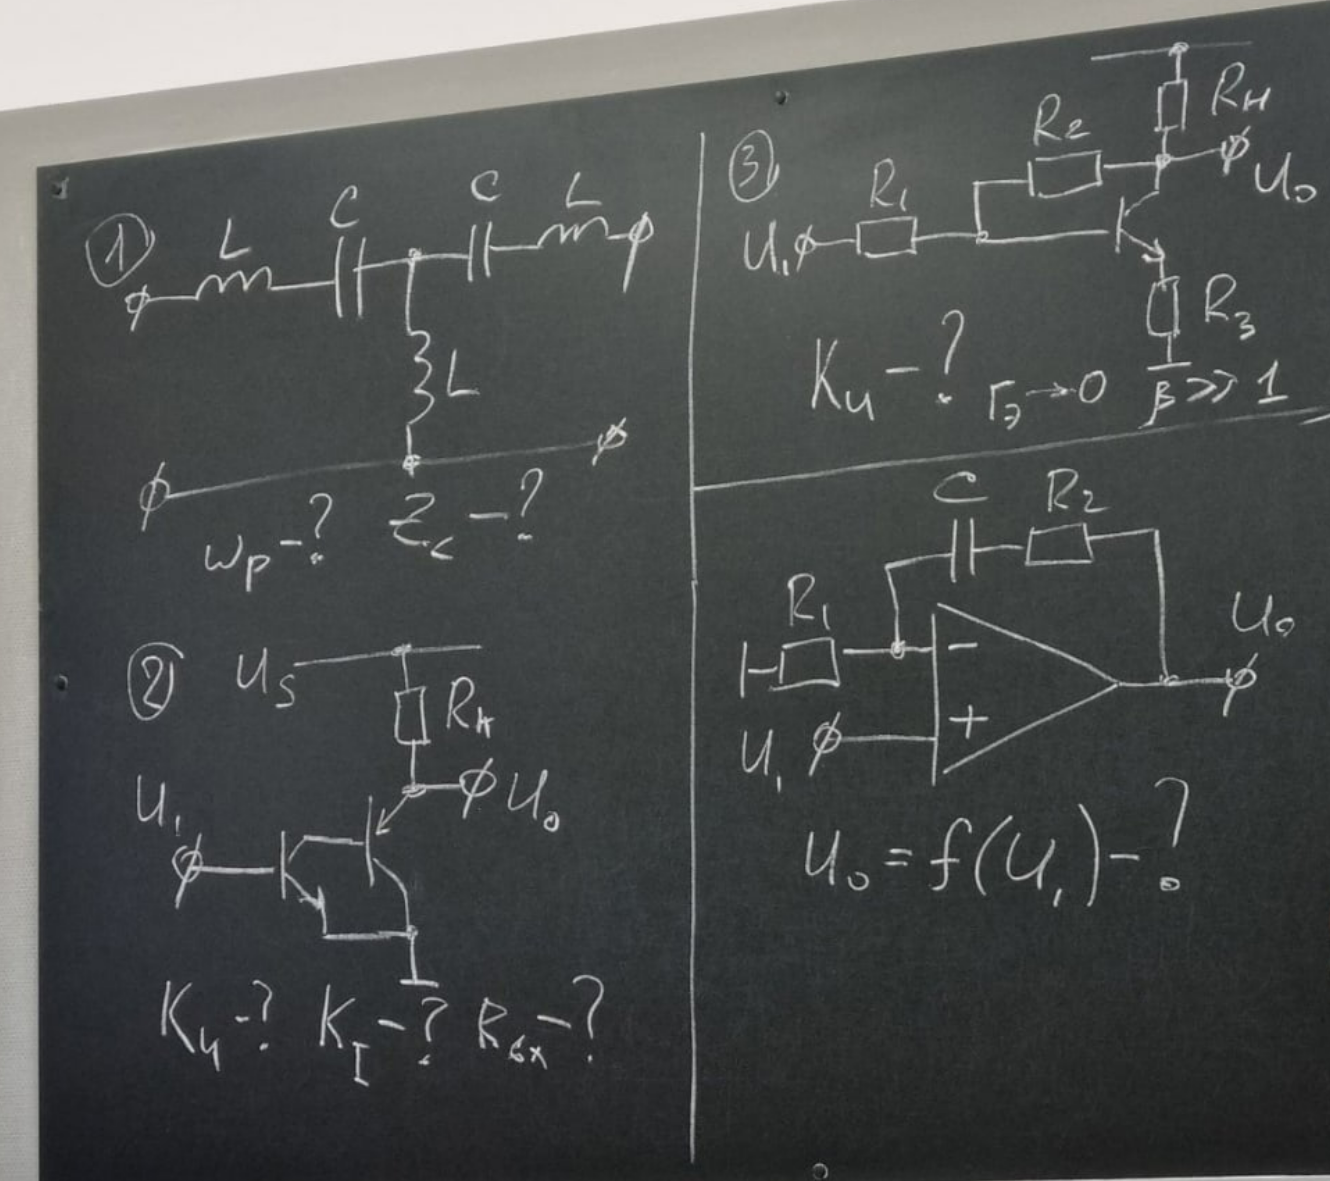 ① L C C L
L
ωp-? Zc-?
② Us Rн
U₁ U₀
Ku-? KI-? Rвх-?
③ U₁ R₁ R₂ Rн U₀
R₃
Ku-? rэ→0 β>>1
C R₂
R₁ - U₀
U₁ +
U₀=f(U₁)-?